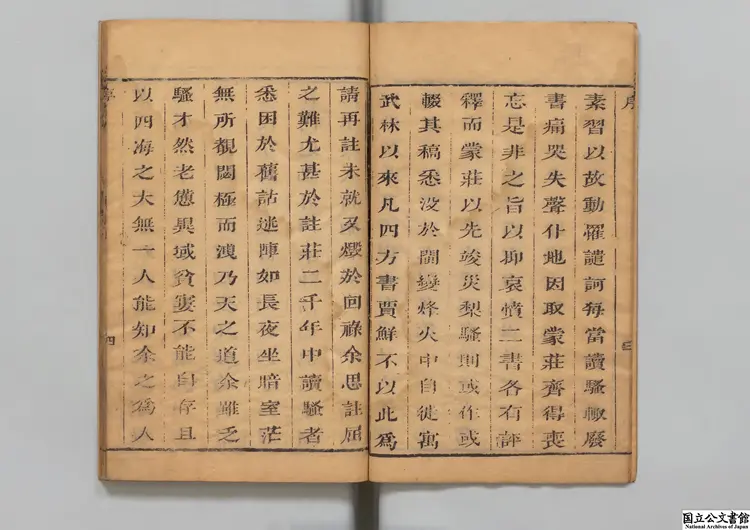 序
三
素習以故動罹譴訶每當讀騷輒廢
書痛哭失聲仆地因取蒙莊齊得喪
忘是非之旨以抑哀憤二書各有評
釋而蒙莊以先竣災梨騷則或作或
輟其稿悉没於閩變烽火中自徙寓
武林以來凡四方書賈鮮不以此為
請再註未就又燬於回祿余思註屈
之難尤甚於註莊二千年中讀騷者
悉困於舊詁迷陣如長夜坐暗室茫
無所覩閟極而洩乃天之道余雖乏
騷才然老憊異域貧窶不能自存且
以四海之大無一人能知余之為人
序
四
国立公文書館
National Archives of Japan